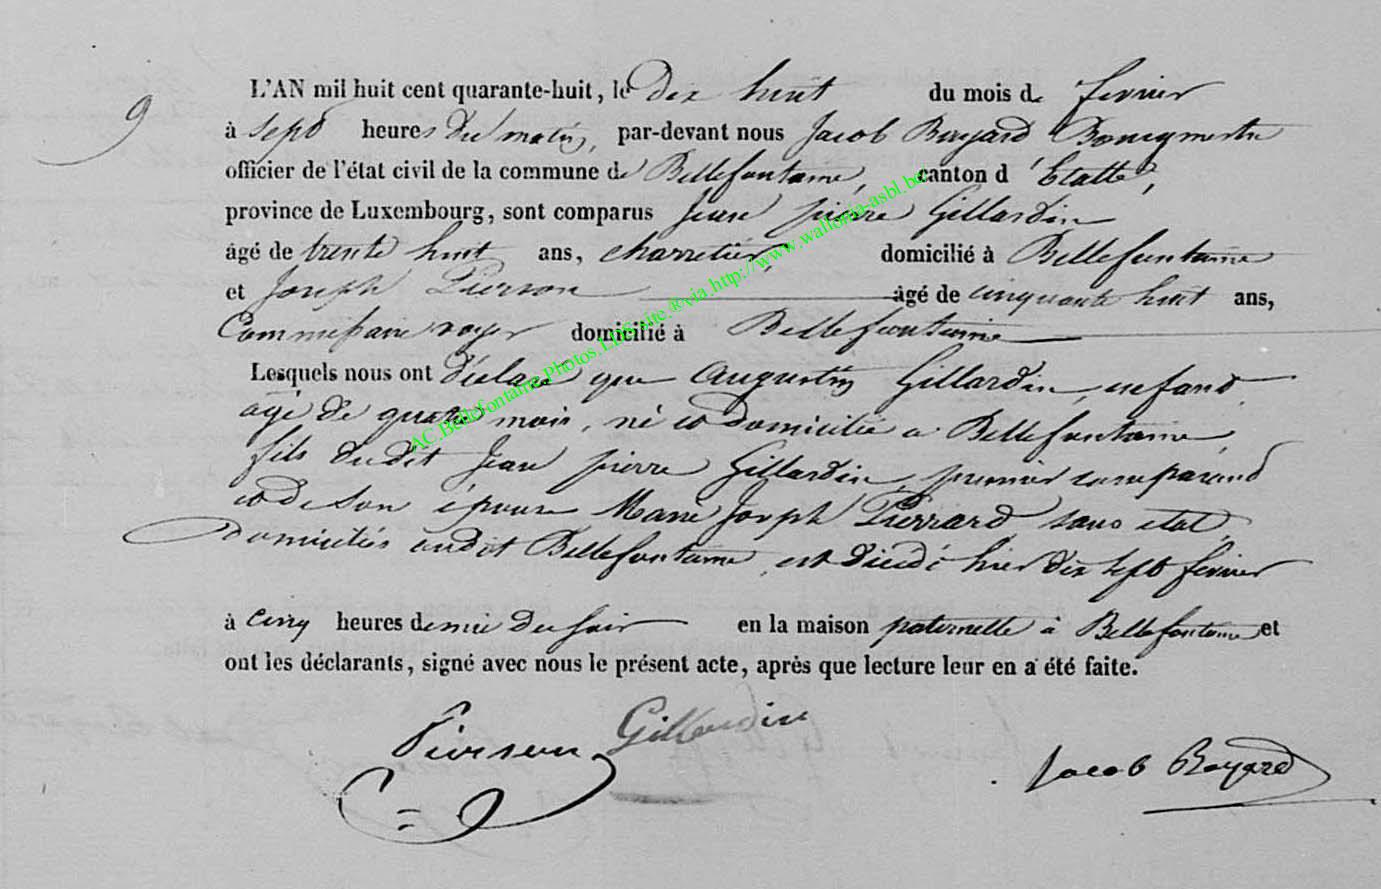 9
L'AN mil huit cent quarante-huit, le dix huit du mois de fevrier
à sept heures du matin, par-devant nous Jacob Bayard Bourgmestre
officier de l'état civil de la commune de Bellefontaine, canton d'Etalle,
province de Luxembourg, sont comparus Jean pierre Gillardin
âgé de trente huit ans, charretier, domicilié à Bellefontaine
et Joseph Pierson âgé de cinquante huit ans,
Commissaire voyer domicilié à Bellefontaine
Lesquels nous ont déclaré que Augustin Gillardin, enfant
agé de mois, né et domicilié a Bellefontaine,
fils dudit Jean pierre Gillardin, premier comparand
et de son épouse Marie Joseph Pierrard sans etat
domiciliés audit Bellefontaine, est décédé hier dix sept fevrier
à cinq heures demie du soir en la maison paternelle à Bellefontaine et
ont les déclarants, signé avec nous le présent acte, après que lecture leur en a été faite.
Pierson Gillardin
Jacob Bayard
AC.Bellefontaine.Photos.LDS.site.®via.http://www.wallonia-asbl.be